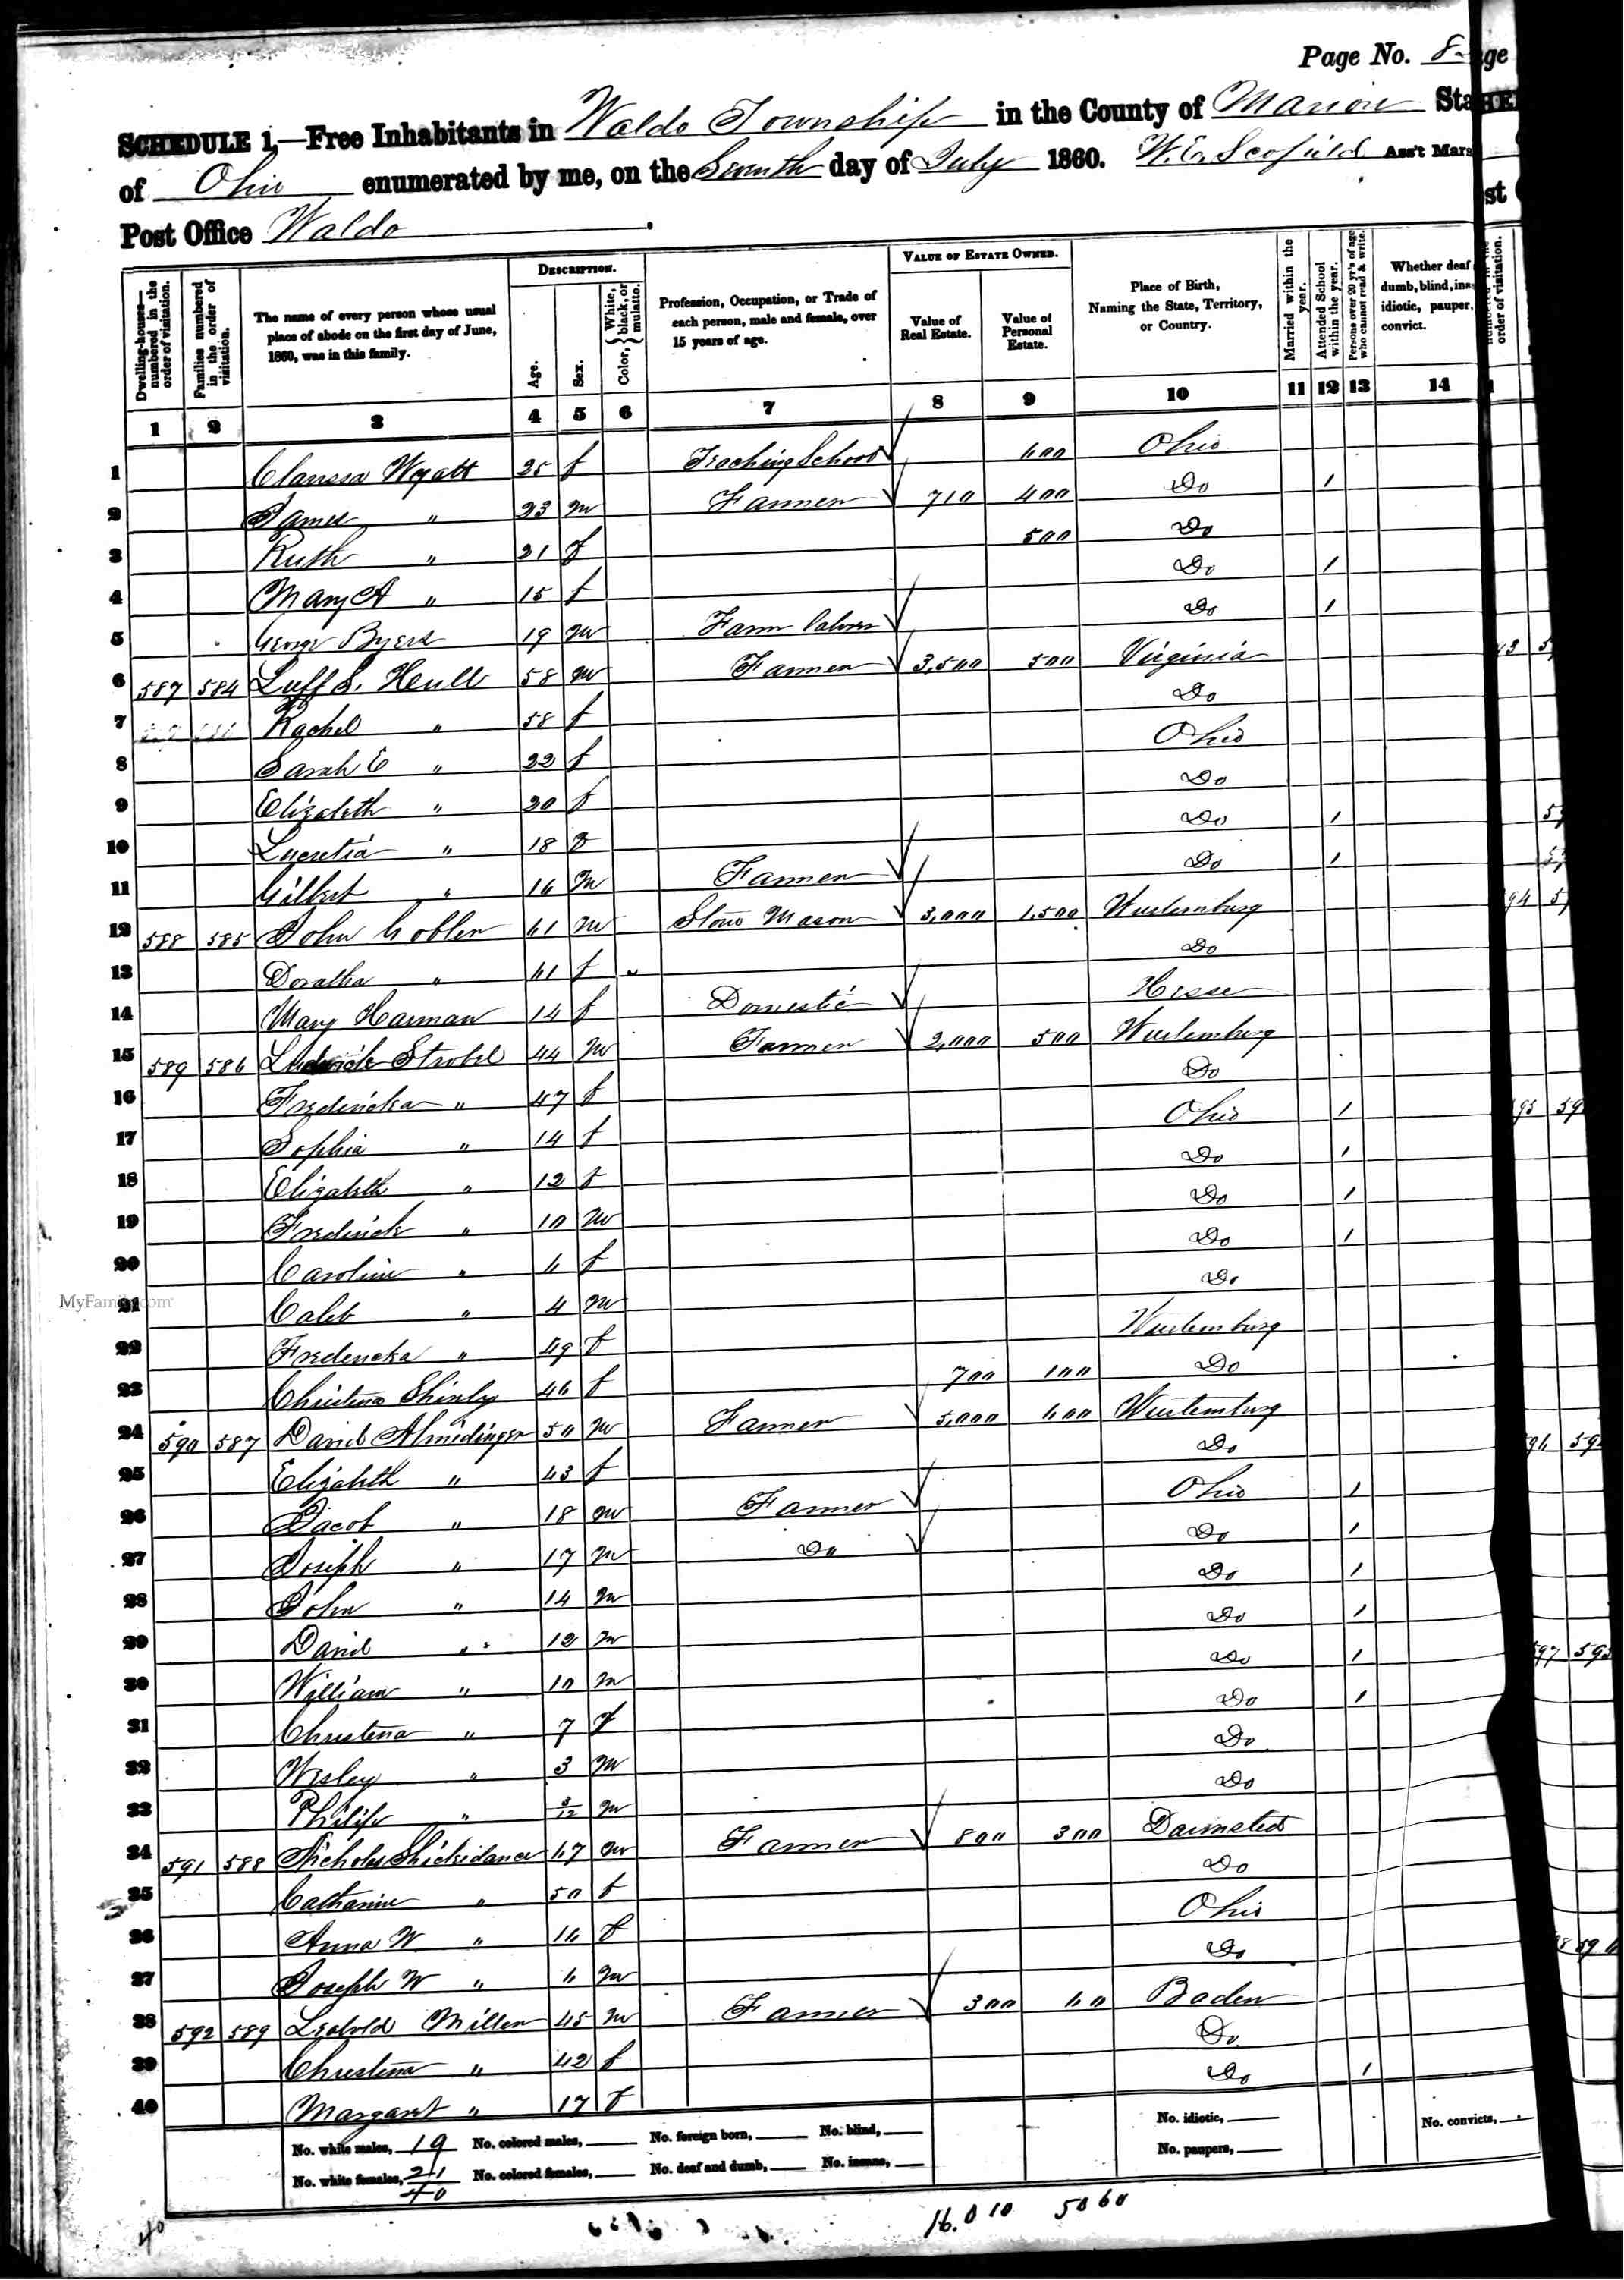 Page No. 8
SCHEDULE 1.—Free Inhabitants in Waldo Township in the County of Marion Sta
of Ohio enumerated by me, on the Seventh day of July 1860. W. E. Scofield Ass't Mars
Post Office Waldo.
Dwelling-houses—numbered in the order of visitation. Families numbered in the order of visitation. The name of every person whose usual place of abode on the first day of June, 1860, was in this family. DESCRIPTION. Age. Sex. Color, White, black, or mulatto. Profession, Occupation, or Trade of each person, male and female, over 15 years of age. VALUE OF ESTATE OWNED. Value of Real Estate. Value of Personal Estate. Place of Birth, Naming the State, Territory, or Country. Married within the year. Attended School within the year. Persons over 20 y'rs of age who cannot read & write. Whether deaf dumb, blind, ins idiotic, pauper, convict.
1 2 3 4 5 6 7 8 9 10 11 12 13 14
1 Clarissa Wyatt 25 f Teaching School 600 Ohio
2 James " 23 m Farmer 710 400 Do 1
3 Ruth " 21 f 500 Do
4 Mary A " 15 f Do 1
5 George Byers 19 m Farm labor Do 1
6 587 584 Luff S. Hull 58 m Farmer 3,500 500 Virginia
7 Rachel " 58 f Do
8 Sarah E " 22 f Ohio
9 Elizabeth " 20 f Do
10 Lucretia " 18 f Do 1
11 Gilbert " 16 m Farmer Do 1
12 588 585 John Gobler 61 m Stone Mason 3,000 1,500 Wurtemburg
13 Doratha " 61 f Do
14 Mary Harman 14 f Domestic Hesse
15 589 586 Strobel 44 m Farmer 2,000 500 Wurtemburg
16 Fredericka " 47 f Do
17 Sophia " 14 f Ohio 1
18 Elizabeth " 12 f Do 1
19 Frederick " 10 m Do 1
20 Caroline " 6 f Do 1
21 Caleb " 4 m Do
22 Fredericka " 49 f Wurtemburg
23 Christena Shirly 46 f 700 100 Do
24 590 587 David Almidinger 50 m Farmer 5,000 600 Wurtemburg
25 Elizabeth " 43 f Do
26 Jacob " 18 m Farmer Ohio 1
27 Joseph " 17 m Do Do 1
28 John " 14 m Do 1
29 David " 12 m Do 1
30 William " 10 m Do 1
31 Christena " 7 f Do 1
32 Wesley " 3 m Do
33 Philip " 3/12 m Do
34 591 588 Nicholas Shickidance 67 m Farmer 800 300 Darmsted
35 Catharine " 50 f Do
36 Anna W. " 16 f Ohio
37 Joseph W " 6 m Do
38 592 589 Leobold Miller 45 m Farmer 300 60 Baden
39 Christena " 42 f Do
40 Margaret " 17 f Do 1
No. white males, 19 No. colored males, No. foreign born, No. blind, No. idiotic, No. convicts,
No. white females, 21 No. colored females, No. deaf and dumb, No. insane, No. paupers,
40
16.010 5060
40
MyFamily.com